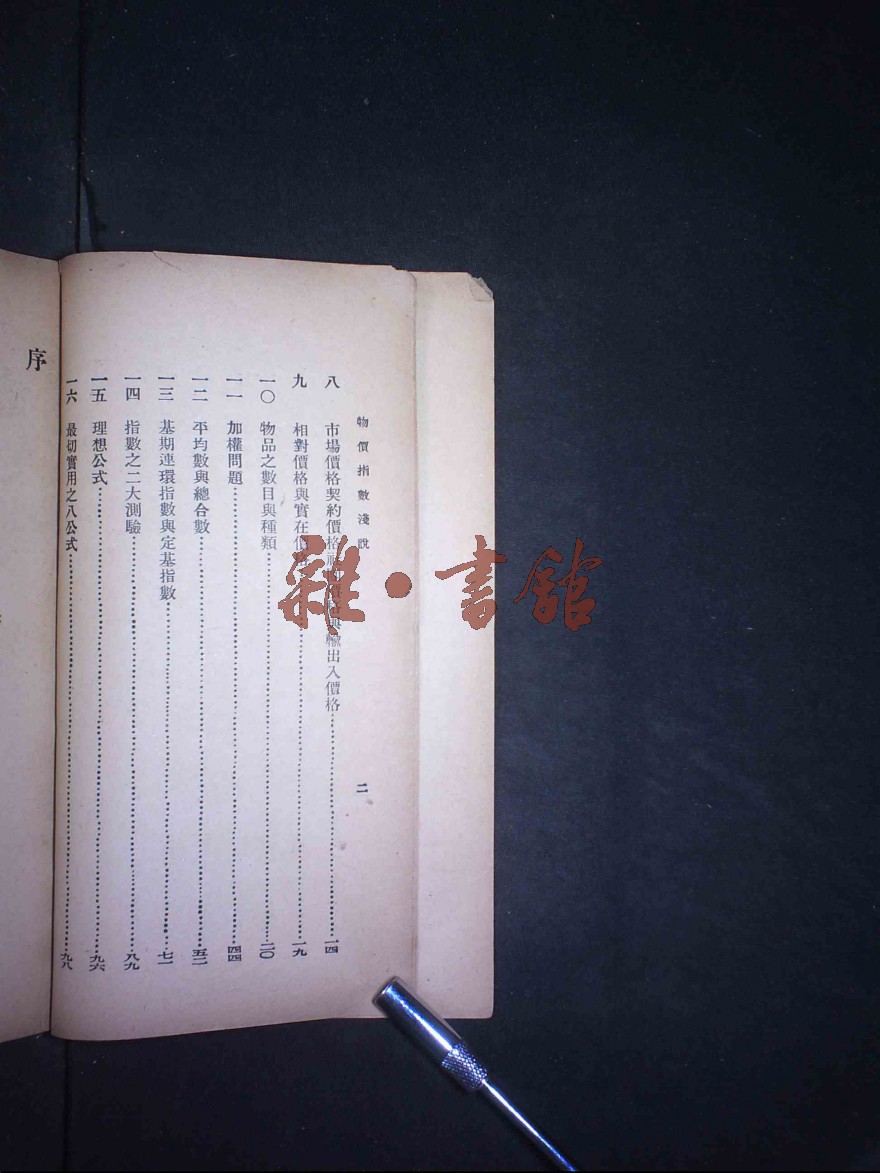 物價指數淺說
二
八 市場價格契約價格 價格與輸出入價格……一四
九 相對價格與實在價格……一九
一〇 物品之數目與種類……二〇
一一 加權問題……四四
一二 平均數與總合數……五二
一三 基期連環指數與定基指數……七一
一四 指數之二大測驗……八九
一五 理想公式……九六
一六 最切實用之八公式……九八
序
雜·書館